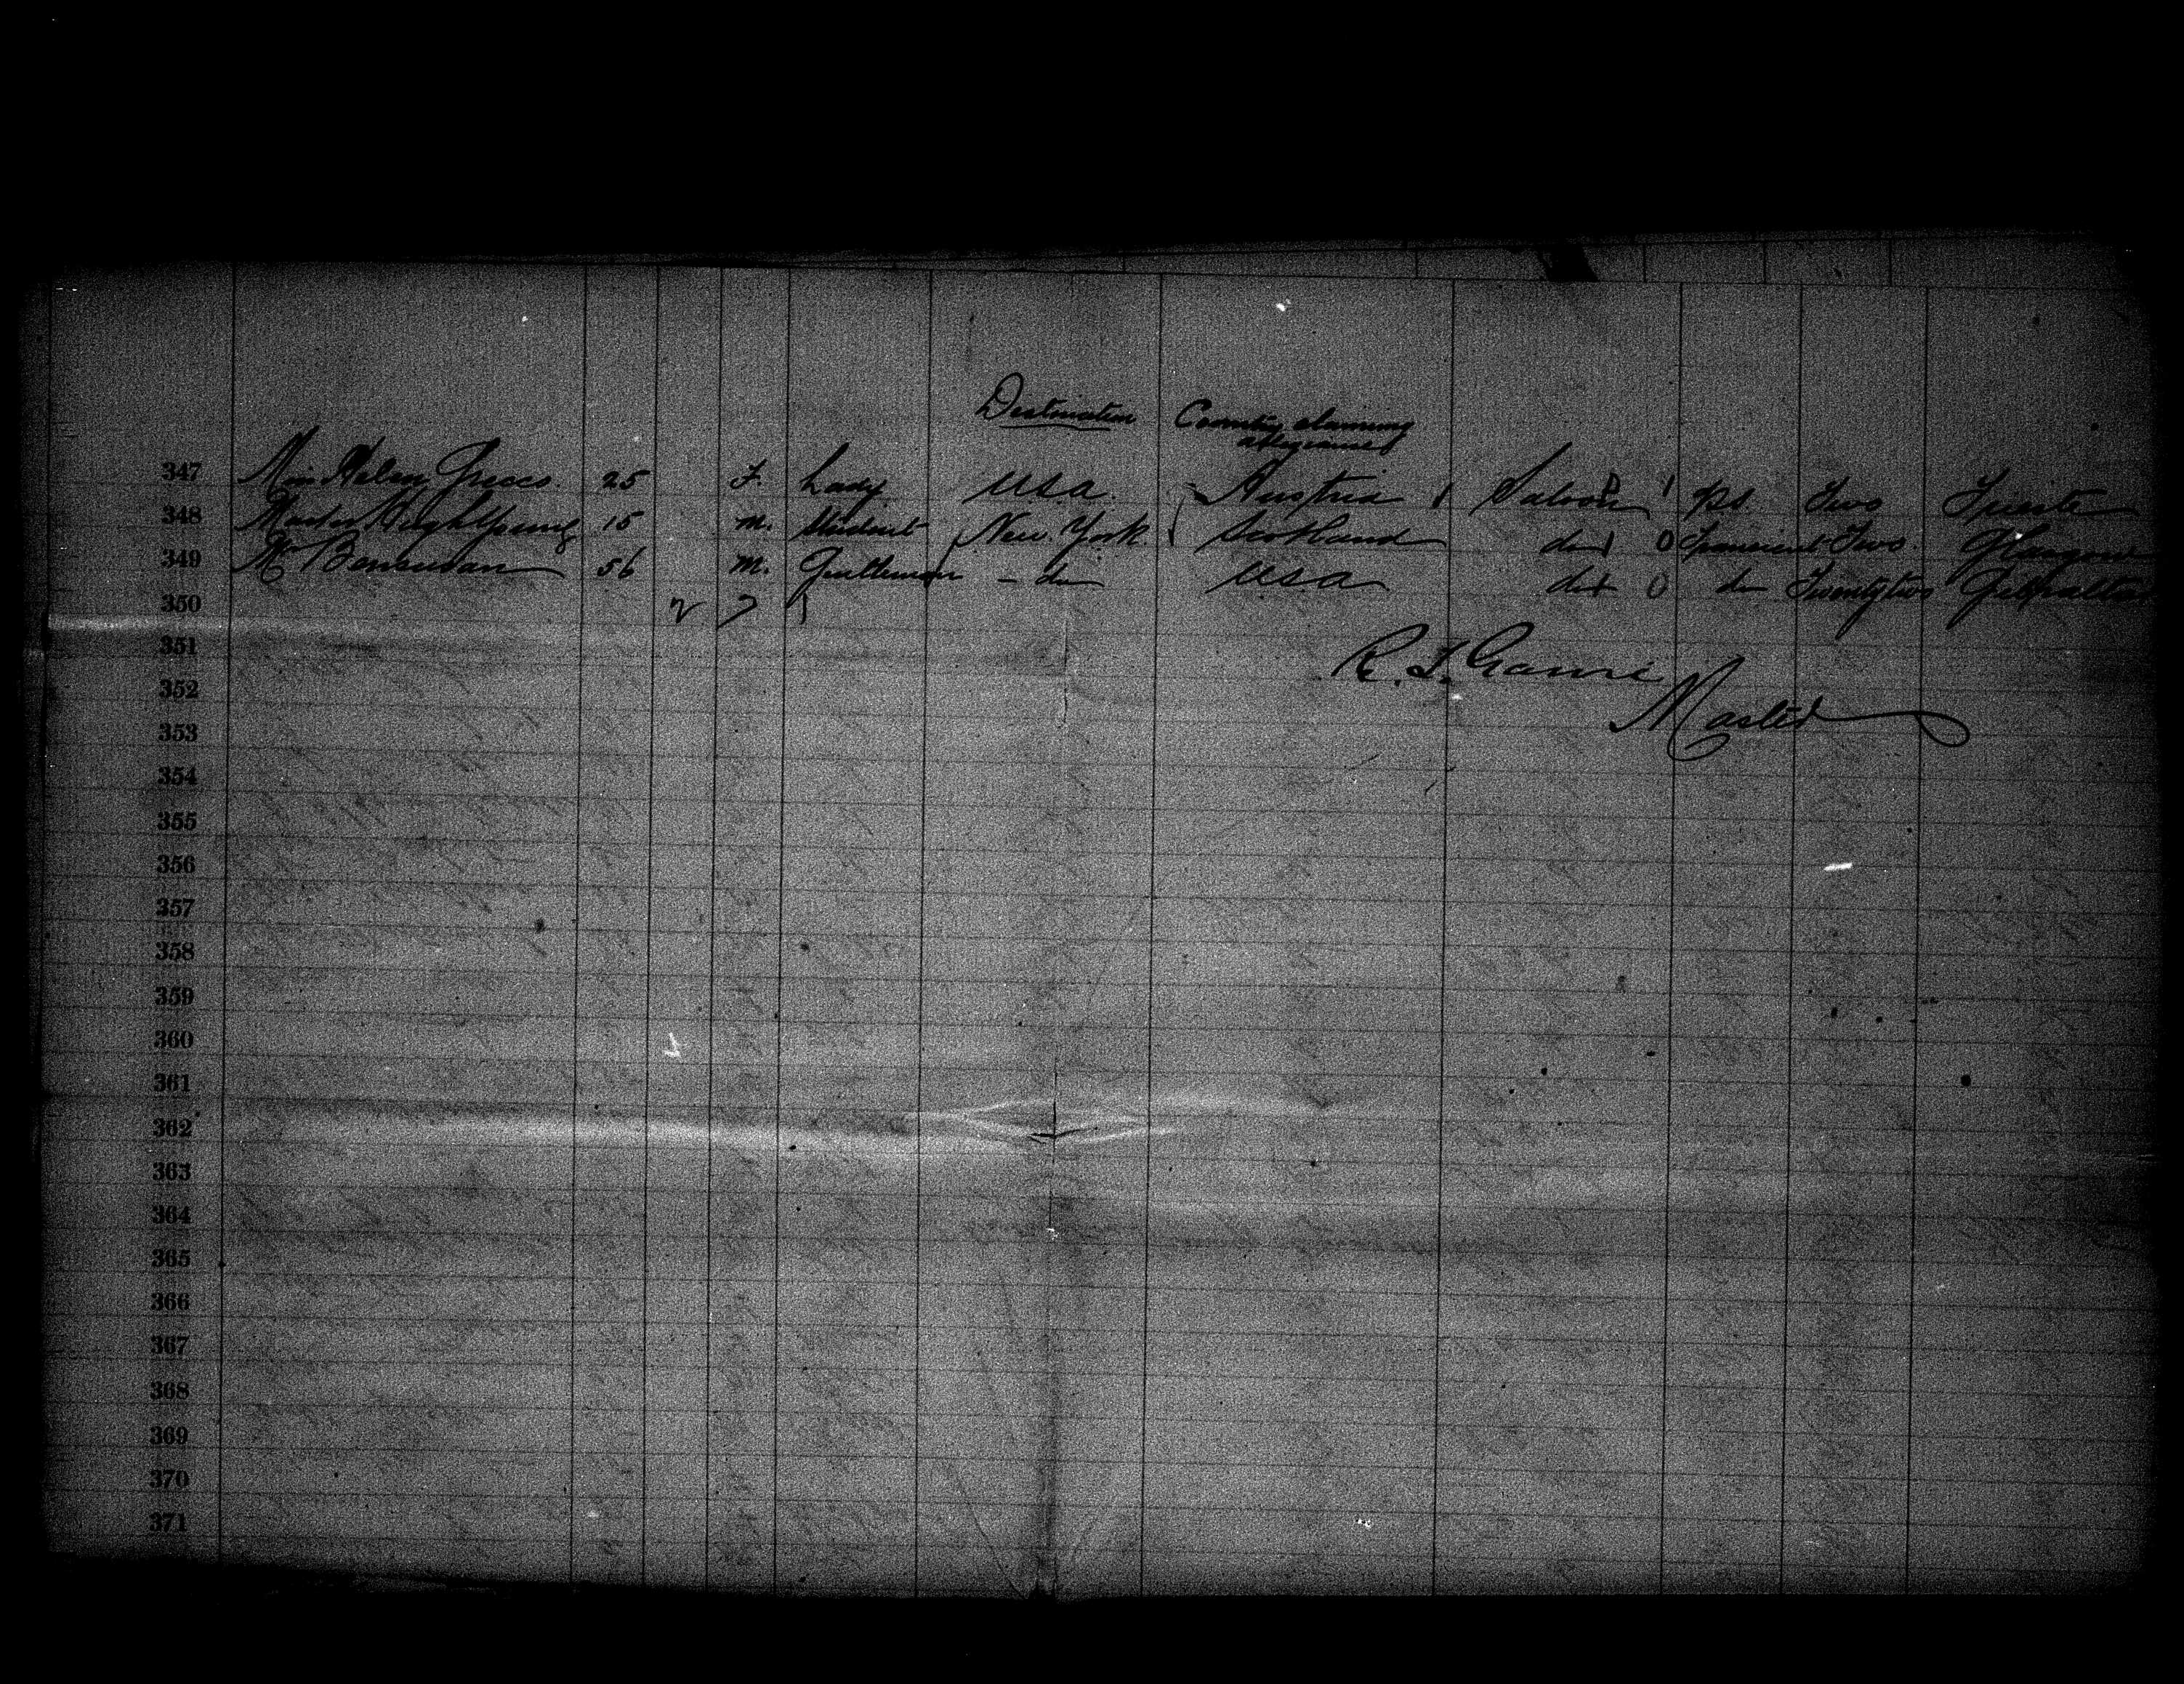 Destination Country claiming
allegiance
347 Miss Helen Greco 25 F. Lady U.S.A. Austria Saloon 1 Ps. Two Trieste
348 Master Hugh Young 15 M. Student New York Scotland do 0 Transient Two Glasgow
349 Mr Benusan 56 M. Gentleman - do U.S.A do 0 do Twentytwo Gibraltar
350
351 R. L.
352 Master
353
354
355
356
357
358
359
360
361
362
363
364
365
366
367
368
369
370
371